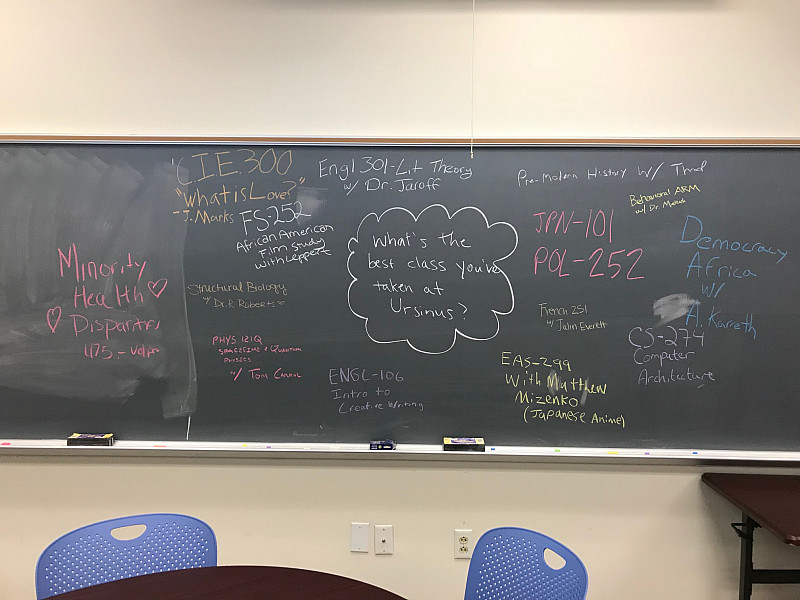 CIE300
"What is Love?"
-J. Marks
FS-252
African American
Film Study
with Leppert
Engl 301-Lit Theory
w/ Dr. Jaroff
Pre-Modern History w/ Throd
Behavioral ARM
w/ Dr.
What's the
best class you've
taken at
Ursinus?
JPN-101
POL-252
Democracy
Africa
w/
A. Kareth
Minority
Health
Disparties
475
Structural Biology
w/ Dr. R. Roberts
PHYS 121Q
SPACETIME & QUANTUM
PHYSICS
w/ Tom Carroll
ENGL-106
Intro to
Creative Writing
French 251
w/ Julin Everett
EAS-299
With Matthew
Mizenko
(Japanese Anime)
CS-274
Computer
Architecture